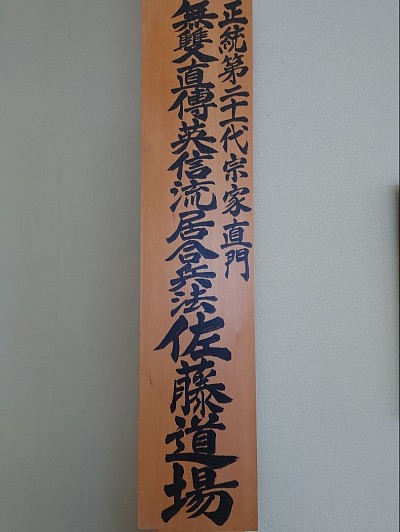 正統第二十一代宗家直門
無雙直傳英信流居合兵法佐藤道場